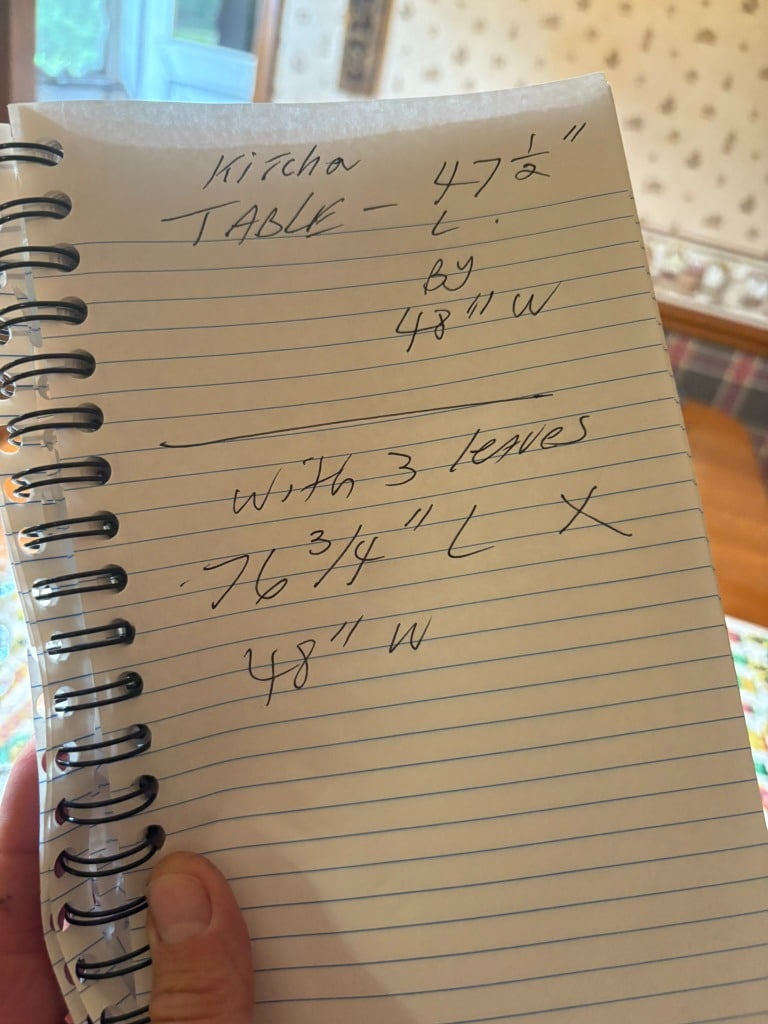 Kitchn
TABLE - 47 1/2"
L.
By
48" W
With 3 leaves
76 3/4" L X
48" W